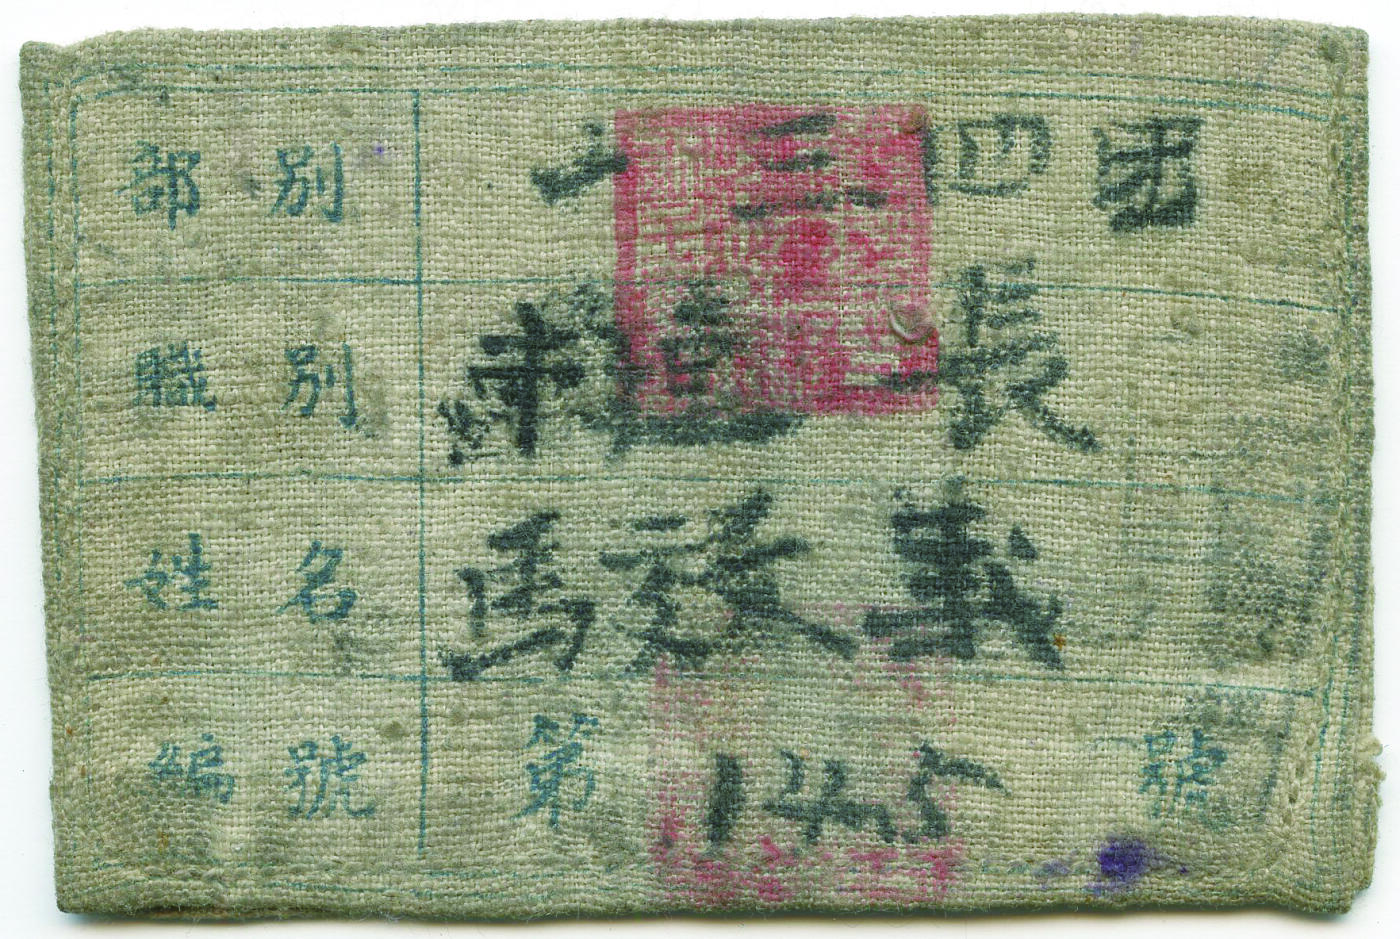 部別 一三四团
職別 長
姓名 馬
編號 第 145 號